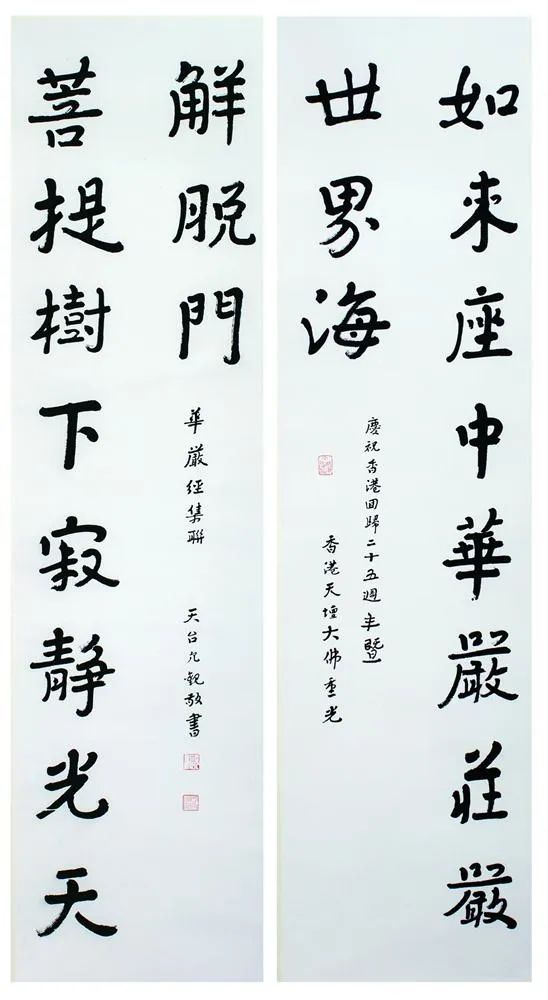 如來座中華嚴莊嚴
世界海
慶祝香港回歸二十五週年暨
香港天壇大佛重光
菩提樹下寂靜光天
解脫門
華嚴經集聯 天台允觀敬書